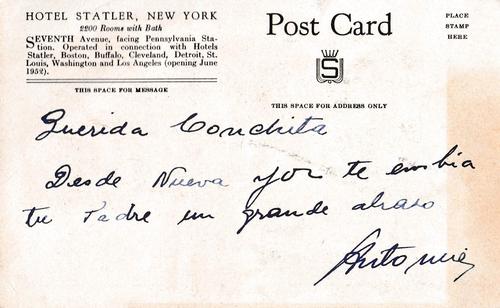 HOTEL STATLER, NEW YORK
2200 Rooms with Bath
SEVENTH Avenue, facing Pennsylvania Sta-
tion. Operated in connection with Hotels
Statler, Boston, Buffalo, Cleveland, Detroit, St.
Louis, Washington and Los Angeles (opening June
1952).
THIS SPACE FOR MESSAGE
Post Card
PLACE
STAMP
HERE
S
THIS SPACE FOR ADDRESS ONLY
Querida Conchita
Desde Nueva yor te embia
tu Padre un grande abraso
Antonio